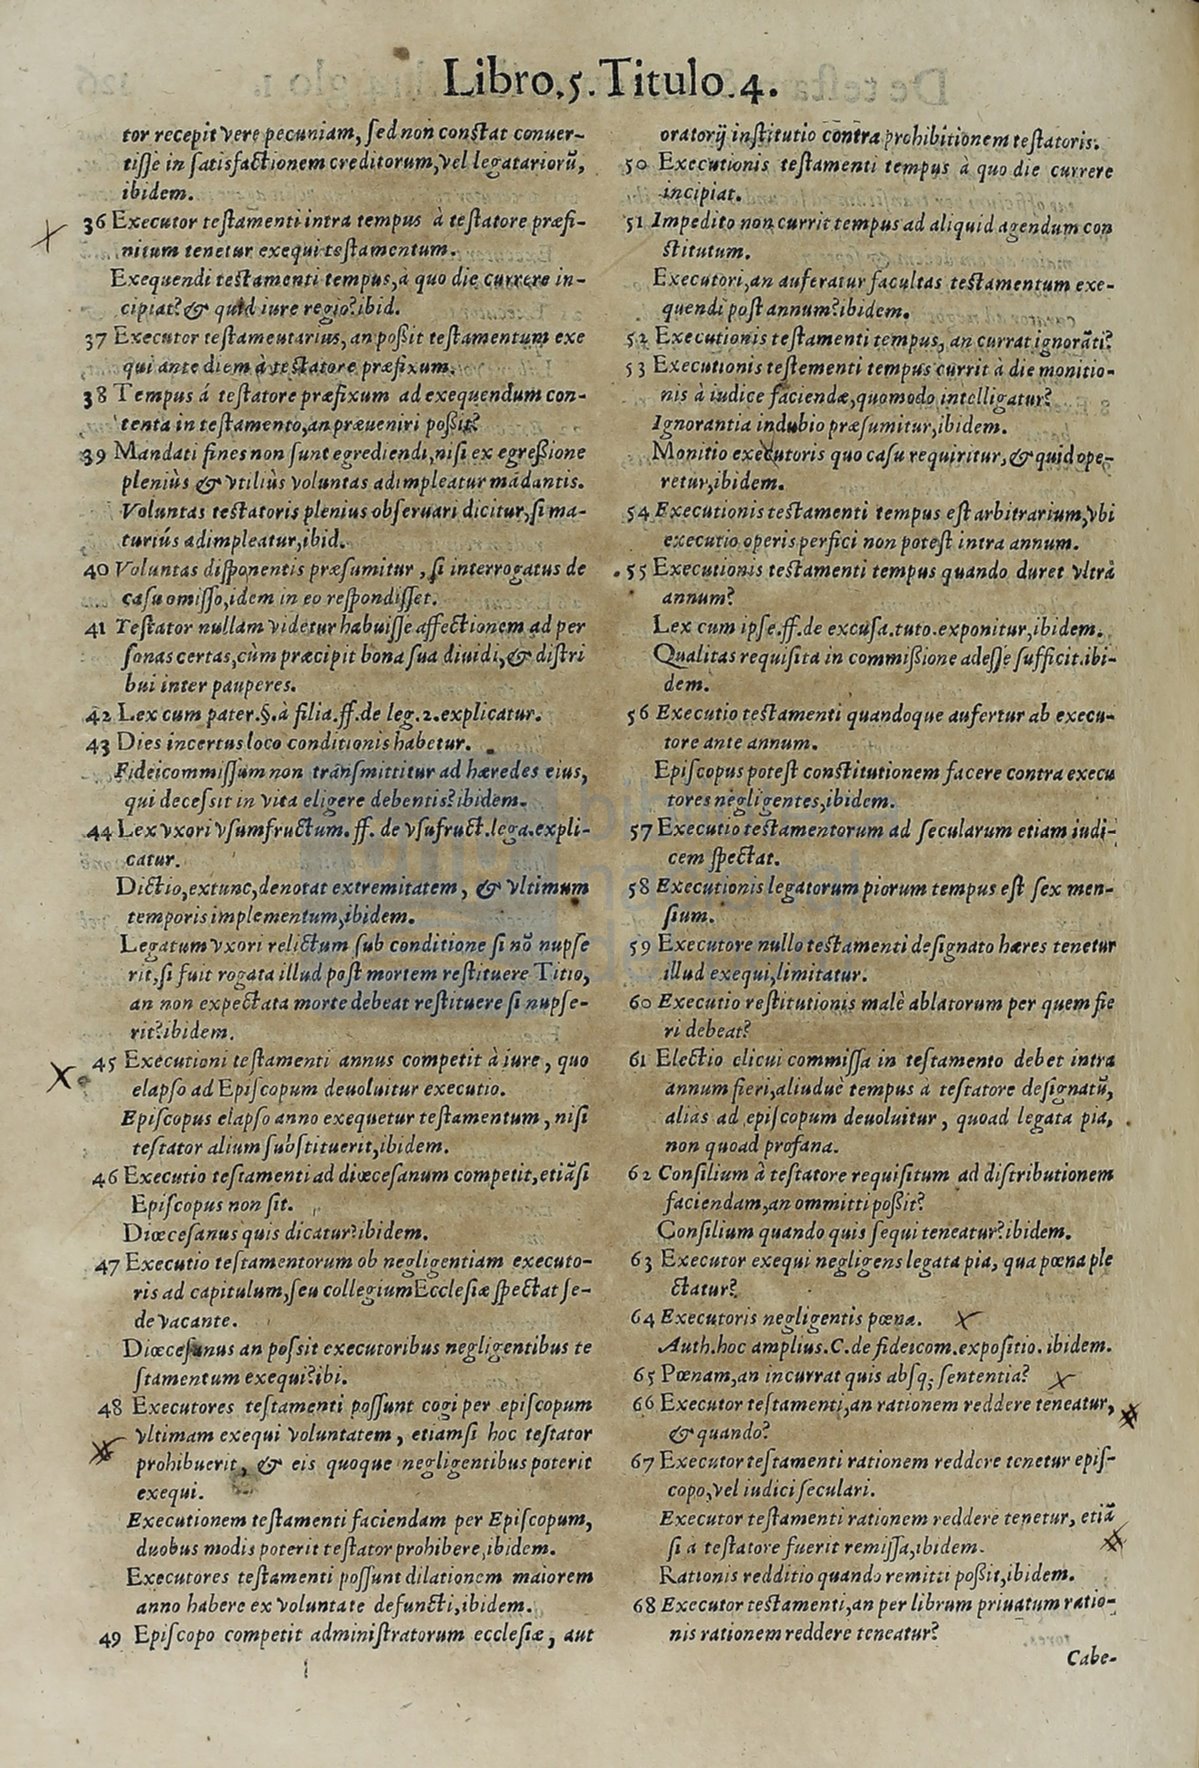 Libro.5.Titulo.4.
tor recepit vere pecuniam, sed non constat conuer-
tisse in satisfactionem creditorum, vel legatariorũ,
ibidem.
36 Executor testamenti intra tempus à testatore præfi-
nitum tenetur exequi testamentum.
Exequendi testamenti tempus, à quo die currere in-
cipiat? & quid iure regio? ibid.
37 Executor testamentarius, an poßit testamentum exe
qui ante diem à testatore præfixum.
38 Tempus á testatore præfixum ad exequendum con-
tenta in testamento, an præueniri poßit?
39 Mandati fines non sunt egrediendi, nisi ex egreßione
pleniùs & vtiliùs voluntas adimpleatur mãdantis.
Voluntas testatoris plenius obseruari dicitur, si ma-
turiús adimpleatur, ibid.
40 Voluntas disponentis præsumitur, si interrogatus de
casu omisso, idem in eo respondisset.
41 Testator nullam videtur habuisse affectionem ad per
sonas certas, cùm præcipit bona sua diuidi, & distri
bui inter pauperes.
42 Lex cum pater.§.à filia.ff.de leg.2.explicatur.
43 Dies incertus loco conditionis habetur.
Fideicommissum non transmittitur ad hæredes eius,
qui decessit in vita eligere debentis? ibidem.
44 Lex vxori vsumfructum.ff. de vsufruct.lega.expli-
catur.
Dictio, extunc, denotat extremitatem, & vltimum
temporis implementum, ibidem.
Legatum vxori relictum sub conditione si nõ nupse
rit, si fuit rogata illud post mortem restituere Titio,
an non expectata morte debeat restituere si nupse-
rit? ibidem.
45 Executioni testamenti annus competit à iure, quo
elapso ad Episcopum deuoluitur executio.
Episcopus elapso anno exequetur testamentum, nisi
testator alium substituerit, ibidem.
46 Executio testamenti ad diœcesanum competit, etiãsi
Episcopus non sit.
Diœcesanus quis dicatur? ibidem.
47 Executio testamentorum ob negligentiam executo-
ris ad capitulum, seu collegium Ecclesiæ spectat se-
de vacante.
Diœcesanus an possit executoribus negligentibus te
stamentum exequi? ibi.
48 Executores testamenti possunt cogi per episcopum
vltimam exequi voluntatem, etiamsi hoc testator
prohibuerit, & eis quoque negligentibus poterit
exequi.
Executionem testamenti faciendam per Episcopum,
duobus modis poterit testator prohibere, ibidem.
Executores testamenti possunt dilationem maiorem
anno habere ex voluntate defuncti, ibidem.
49 Episcopo competit administratorum ecclesiæ, aut
oratorij institutio contra prohibitionem testatoris.
50 Executionis testamenti tempus à quo die currere
incipiat.
51 Impedito non currit tempus ad aliquid agendum con
stitutum.
Executori, an auferatur facultas testamentum exe-
quendi post annum? ibidem.
52 Executionis testamenti tempus, an currat ignorãti?
53 Executionis testementi tempus currit à die monitio-
nis à iudice faciendæ, quomodo intelligatur?
Ignorantia in dubio præsumitur, ibidem.
Monitio executoris quo casu requiritur, & quid ope-
retur, ibidem.
54 Executionis testamenti tempus est arbitrarium, vbi
executio operis perfici non potest intra annum.
55 Executionis testamenti tempus quando duret vltrà
annum?
Lex cum ipse.ff.de excusa.tuto.exponitur, ibidem.
Qualitas requisita in commißione adesse sufficit.ibi-
dem.
56 Executio testamenti quandoque aufertur ab execu-
tore ante annum.
Episcopus potest constitutionem facere contra execu
tores negligentes, ibidem.
57 Executio testamentorum ad secularum etiam iudi-
cem spectat.
58 Executionis legatorum piorum tempus est sex men-
sium.
59 Executore nullo testamenti designato hæres tenetur
illud exequi, limitatur.
60 Executio restitutionis malè ablatorum per quem fie
ri debeat?
61 Electio clicui commissa in testamento debet intra
annum fieri, aliudue tempus à testatore designatũ,
alias ad episcopum deuoluitur, quoad legata pia,
non quoad profana.
62 Consilium à testatore requisitum ad distributionem
faciendam, an ommitti poßit?
Consilium quando quis sequi teneatur? ibidem.
63 Executor exequi negligens legata pia, qua pœna ple
ctatur?
64 Executoris negligentis pœna.
Auth.hoc amplius.C.de fideicom.expositio. ibidem.
65 Pœnam, an incurrat quis absq; sententia?
66 Executor testamenti, an rationem reddere teneatur,
& quando?
67 Executor testamenti rationem reddere tenetur epis-
copo, vel iudici seculari.
Executor testamenti rationem reddere tenetur, etiã
si a testatore fuerit remissa, ibidem.
Rationis redditio quando remitti poßit, ibidem.
68 Executor testamenti, an per librum priuatum ratio-
nis rationem reddere teneatur?
Cabe-